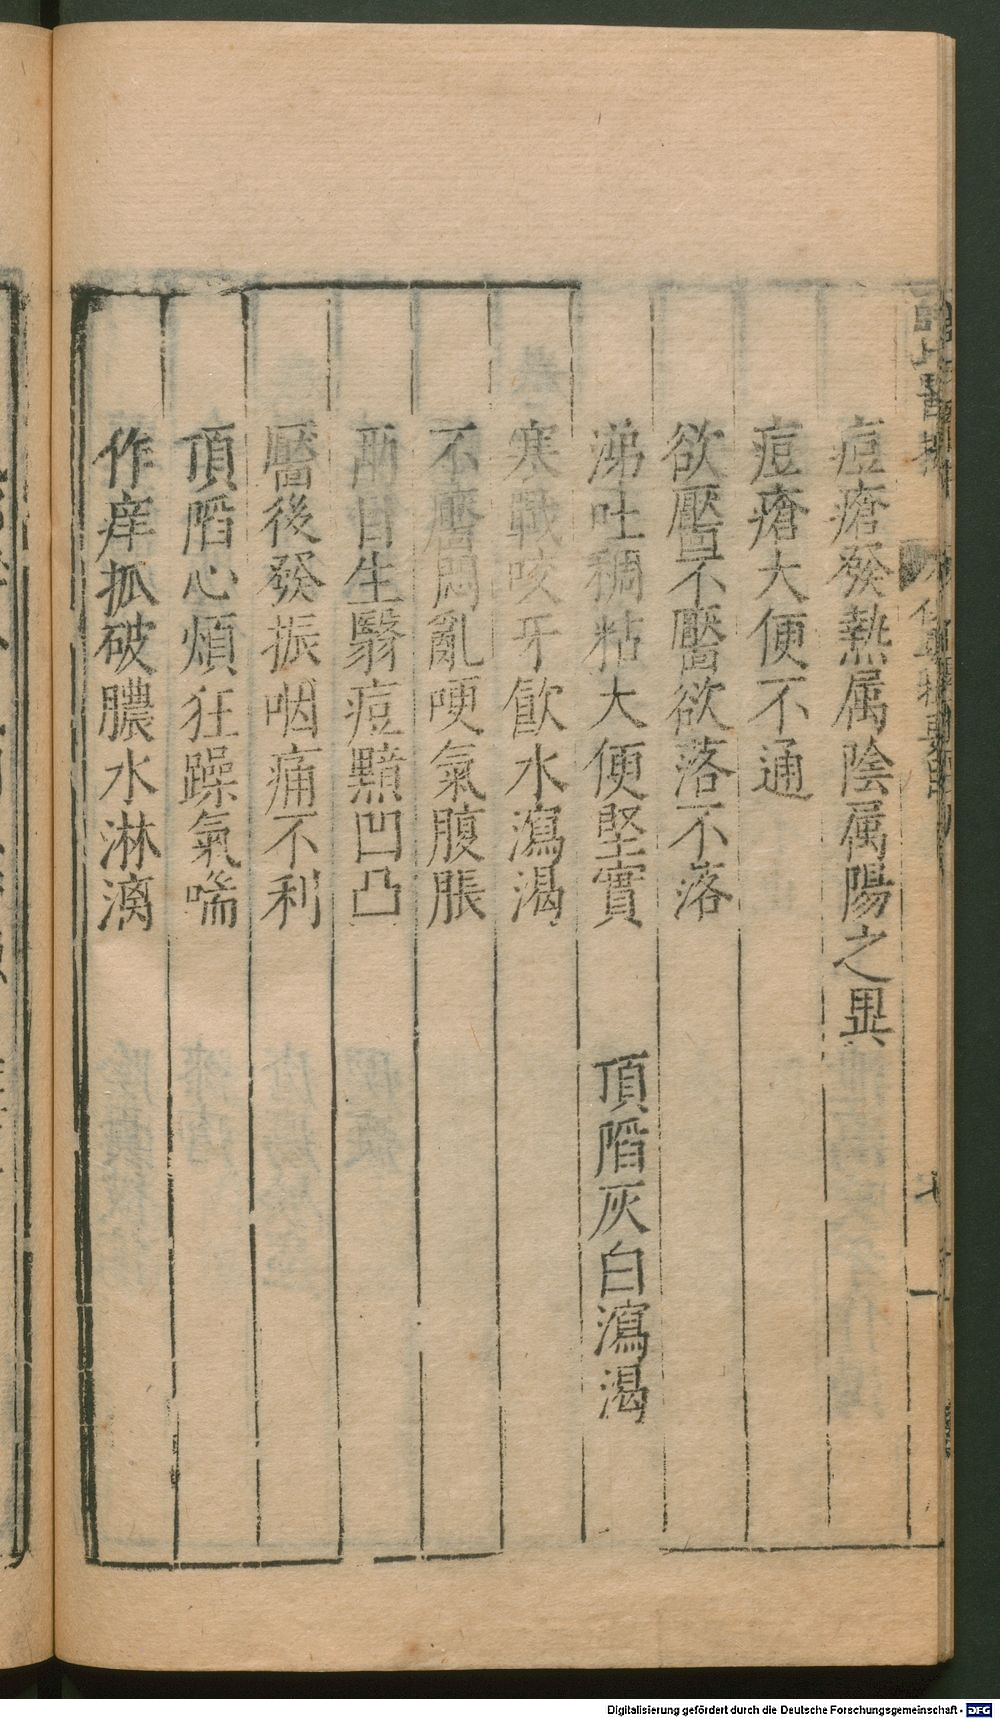 痘瘡發熱属陰属陽之異
痘瘡大便不通
欲靨不靨欲落不落
涕吐稠粘大便堅實 頂陷灰白瀉渴
寒戰咬牙飮水瀉渴
不靨悶亂哽氣腹脹
兩目生翳痘黯凹凸
靨後發振咽痛不利
頂陷心煩狂躁氣喘
作痒抓破膿水淋漓
Digitalisierung gefördert durch die Deutsche Forschungsgemeinschaft - DFG